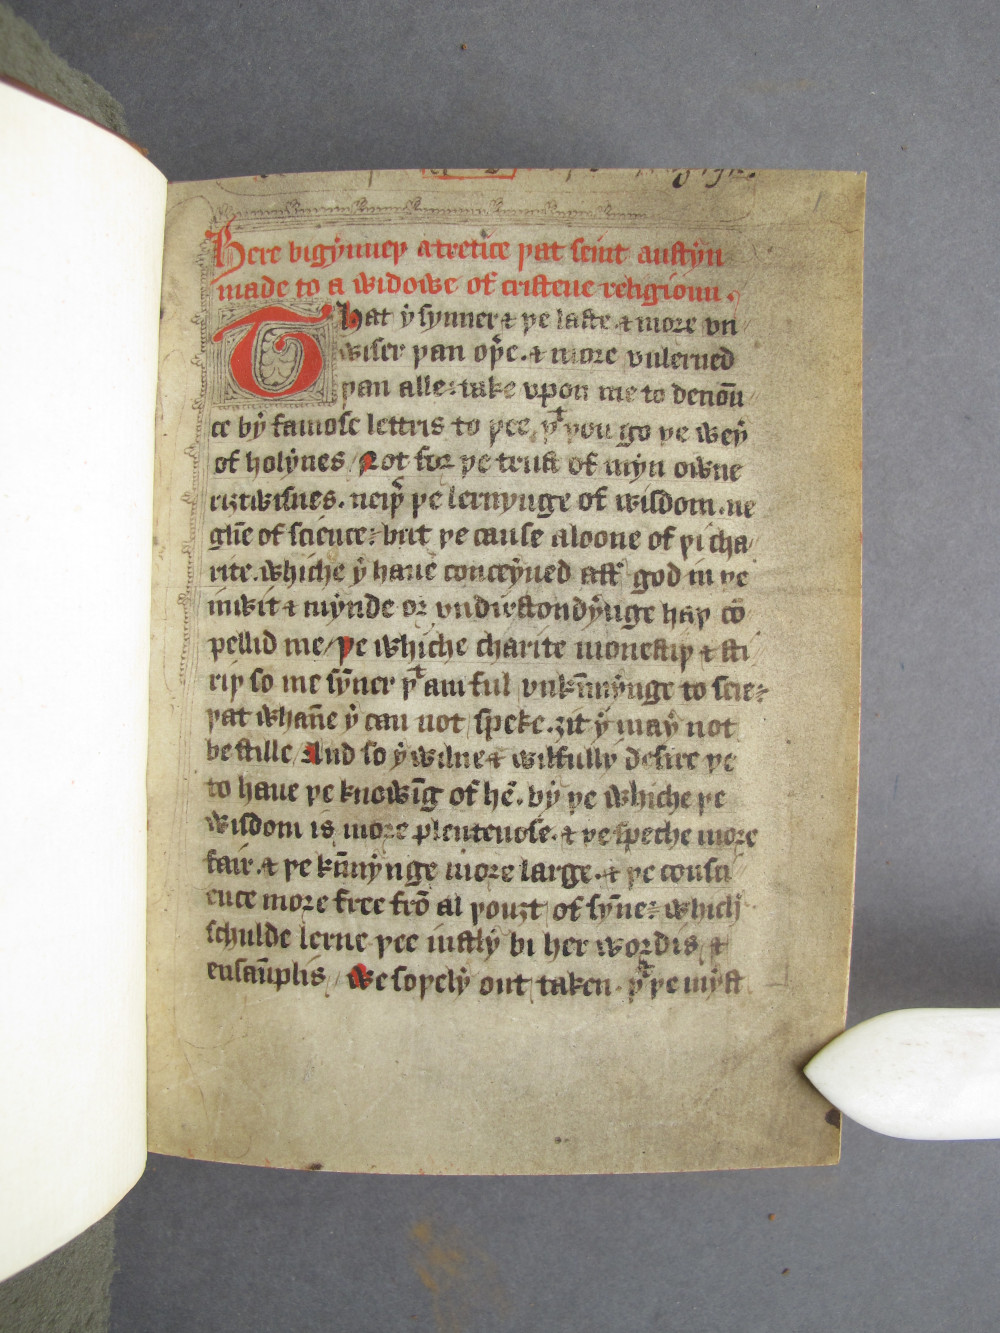 Here bigẏnneþ a tretice þat seint austẏn
made to a widowe of cristene religioun .
That ẏ sẏnner ⁊ þe laste . ⁊ more vn
wiser þan oþ̉e . ⁊ more vnlerned
þan alle : take vpon me to denoū
ce bẏ famose lettris to þee , þᵗ þou go þe weẏ
of holẏnes / Not for þe trust of mẏn owne
riztwisnes . neiþ̉ þe lernynge of wisdom . ne
of science : but þe cause aloone of þi cha
rite . whiche ẏ haue conceẏued aft̉ god in þe
inwit ⁊ mẏnde or vndirstondẏnge haþ cō
pellid me / Þe whiche charite monestiþ ⁊ sti
riþ so me sẏner þᵗ am ful vnkūnẏnge to seie :
þat whāne ẏ can not speke . ȝit ẏ maẏ not
be stille / And so ẏ wilne ⁊ wilfully desire þe
to haue þe knowīg of hē . bẏ þe whiche þe
wisdom is more plenteuose . ⁊ þe speche more
fair . ⁊ þe kūnẏnge more large . ⁊ þe consci
ence more free frō al þouȝt of sẏne : which
schulde lerne þee iustlẏ bi her wordis ⁊
ensaūplis / We soþelẏ out taken . þᵗ þe mẏst